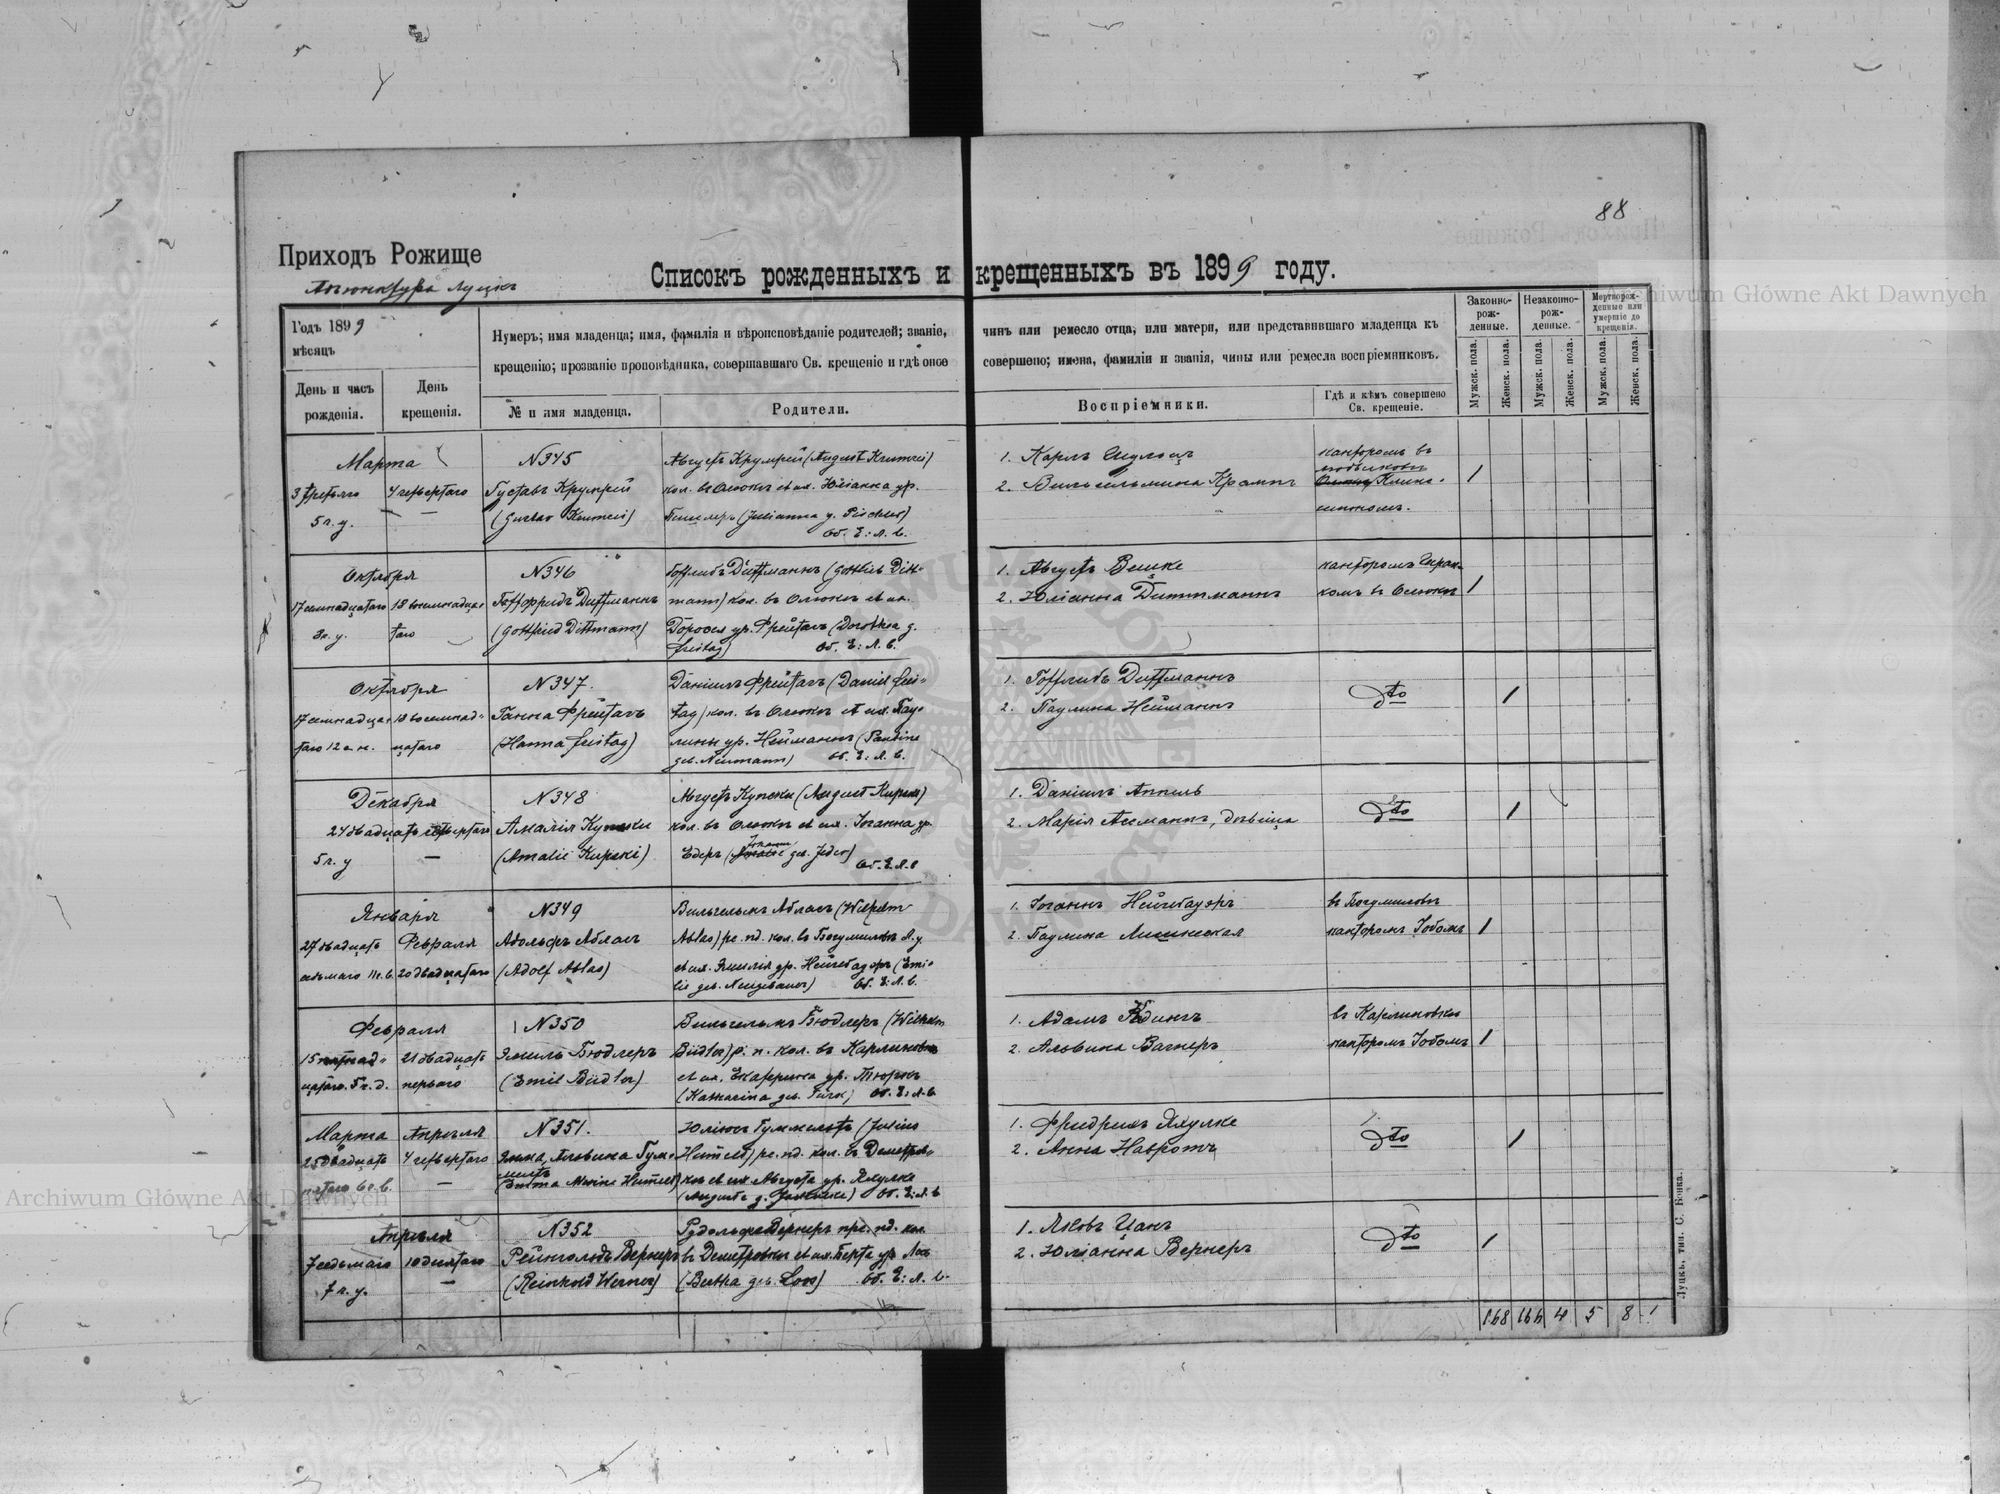 88
Приходъ Рожище
Адъюнктура Луцкъ
Списокъ рожденныхъ и крещенныхъ въ 1899 году.
Годъ 1899
мѣсяцъ
День и часъ
рожденія.
День
крещенія.
Нумеръ; имя младенца; имя, фамилія и вѣроисповѣданіе родителей; званіе, чинъ или ремесло отца, или матери, или представившаго младенца къ
крещенію; прозваніе проповѣдника, совершавшаго Св. крещеніе и гдѣ оное совершено; имена, фамиліи и званія, чины или ремесла воспріемниковъ.
№ и имя младенца.
Родители.
Воспріемники.
Гдѣ и кѣмъ совершено
Св. крещеніе.
Законно-
рож-
денные.
Незаконно-
рож-
денные.
Мертворож-
денные или
умершіе до
крещенія.
Мужск. пола.
Женск. пола.
Мужск. пола.
Женск. пола.
Мужск. пола.
Женск. пола.
Марта
3 третьяго
5 ч. у.
4 четвертаго
N345
Густавъ Крумрей
(Gustav Krumrei)
Августъ Крумрей (August Krumrei)
кол. въ Олюкъ et ux. Юліанна ур.
Пишлеръ (Julianna g. Pischler)
Об. Е: Л. в.
1. Карлъ Шульцъ
2. Вильгельмина Крампъ
канторомъ въ
1
Октября
17 семнадцатаго
3 ч. у.
18 восемнадца-
таго
N346
Готтфридъ Диттманнъ
(Gottfried Dittmann)
Готтлибъ Диттманнъ (Gottlieb Ditt-
mann) кол. въ Олюкъ et ux.
Дороѳея ур. Фрейтагъ (Dorothea g.
Freitag) Об. Е: Л. в.
1. Августъ Вешке
2. Юліанна Диттманнъ
канторомъ
комъ въ Олюкъ
1
Октября
17 семнадца-
таго 12 ч. н.
18 восемнад-
цатаго
N347.
Ганна Фрейтагъ
(Hanna Freitag)
Даніилъ Фрейтагъ (Daniel Frei-
tag) кол. въ Олюкъ et ux. Пау-
лины ур. Нейманнъ (Pauline
geb. Neumann) Об. Е: Л. в.
1. Готтлибъ Диттманнъ
2. Паулина Нейманнъ
dto
1
Декабря
24 двадцать четвертаго
5 ч. у
N348
Амалія Купски
(Amalie Kupski)
Августъ Купски (August Kupski)
кол. въ Олюкъ et ux. Іоганна ур.
Едеръ (Johanne geb. Jeder)
Об. Е. Л. в
1. Даніилъ Аппель
2. Марія Ассманнъ, дѣвица
dto
1
Января
27 двадцать
седьмаго 11 ч. в.
Февраля
20 двадцатаго
N349
Адольфъ Абласъ
(Adolf Ablas)
Вильгельмъ Абласъ (Wilhelm
Ablas) рс. пд. кол. въ Богумиловъ Л. у
et ux. Эмилія ур. Нейгебауэръ (Emi-
lie geb. Neugebauer) Об. Е: Л. в.
1. Іоганнъ Нейгебауэръ
2. Паулина Лишневская
въ Богумиловъ
канторомъ Іобомъ
1
Февраля
15 пятнад-
цатаго. 5 ч. д.
21 двадцать
перваго
N350
Эмиль Бюдлеръ
(Emil Büdler)
Вильгельмъ Бюдлеръ (Wilhelm
Büdler) р. п. кол. въ Карлиновкѣ
et ux. Екатерина ур. Тюркъ
(Katharina geb. Türk) Об. Е: Л. в.
1. Адамъ Рѣдингъ
2. Альвина Вагнеръ
въ Карлиновкѣ
канторомъ Іобомъ
1
Марта
25 двадцать
пятаго 6 ч. в.
Апрѣля
4 четвертаго
N351.
Эмма, Альвина Гум-
мельтъ
Юліюсъ Гуммельтъ (Julius
Humelt) рс. пд. кол. въ Деметров-
кѣ et ux Августа ур. Яхулке
1. Фридрихъ Яхулке
2. Анна Навротъ
dto
1
Апрѣля
7 седьмаго
7 ч. у.
10 десятаго
N352
Рейнгольдъ Вернеръ
(Reinhold Werner)
Рудольфъ Вернеръ прс. пд. кол.
въ Деметровкѣ et ux. Берта ур Лоосъ
(Bertha geb. Loos) Об. Е: Л. в.
1. Яковъ Цанъ
2. Юліанна Вернеръ
dto
1
168 164 4 5 8 1
Луцкъ, тип. С. Бонка.
Archiwum Główne Akt Dawnych
Archiwum Główne Akt Dawnych